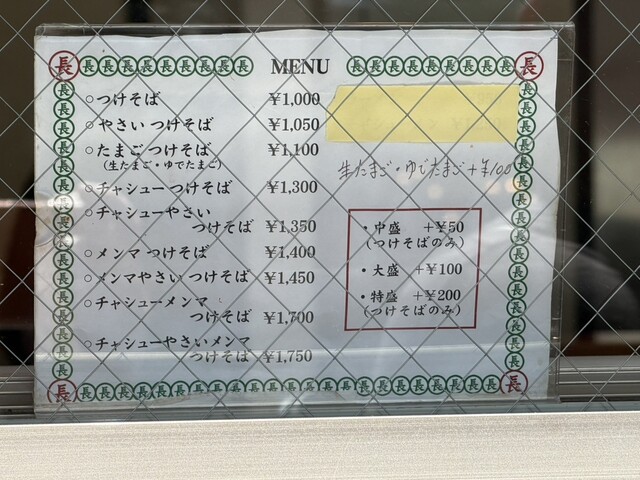 MENU
○つけそば ¥1,000
○やさい つけそば ¥1,050
○たまご つけそば ¥1,100
(生たまご・ゆでたまご)
○チャシュー つけそば ¥1,300
○チャシューやさい
つけそば ¥1,350
○メンマ つけそば ¥1,400
○メンマやさい つけそば ¥1,450
○チャシューメンマ
つけそば ¥1,700
○チャシューやさいメンマ
つけそば ¥1,750
生たまご・ゆでたまご+¥100
・中盛 +¥50
(つけそばのみ)
・大盛 +¥100
・特盛 +¥200
(つけそばのみ)